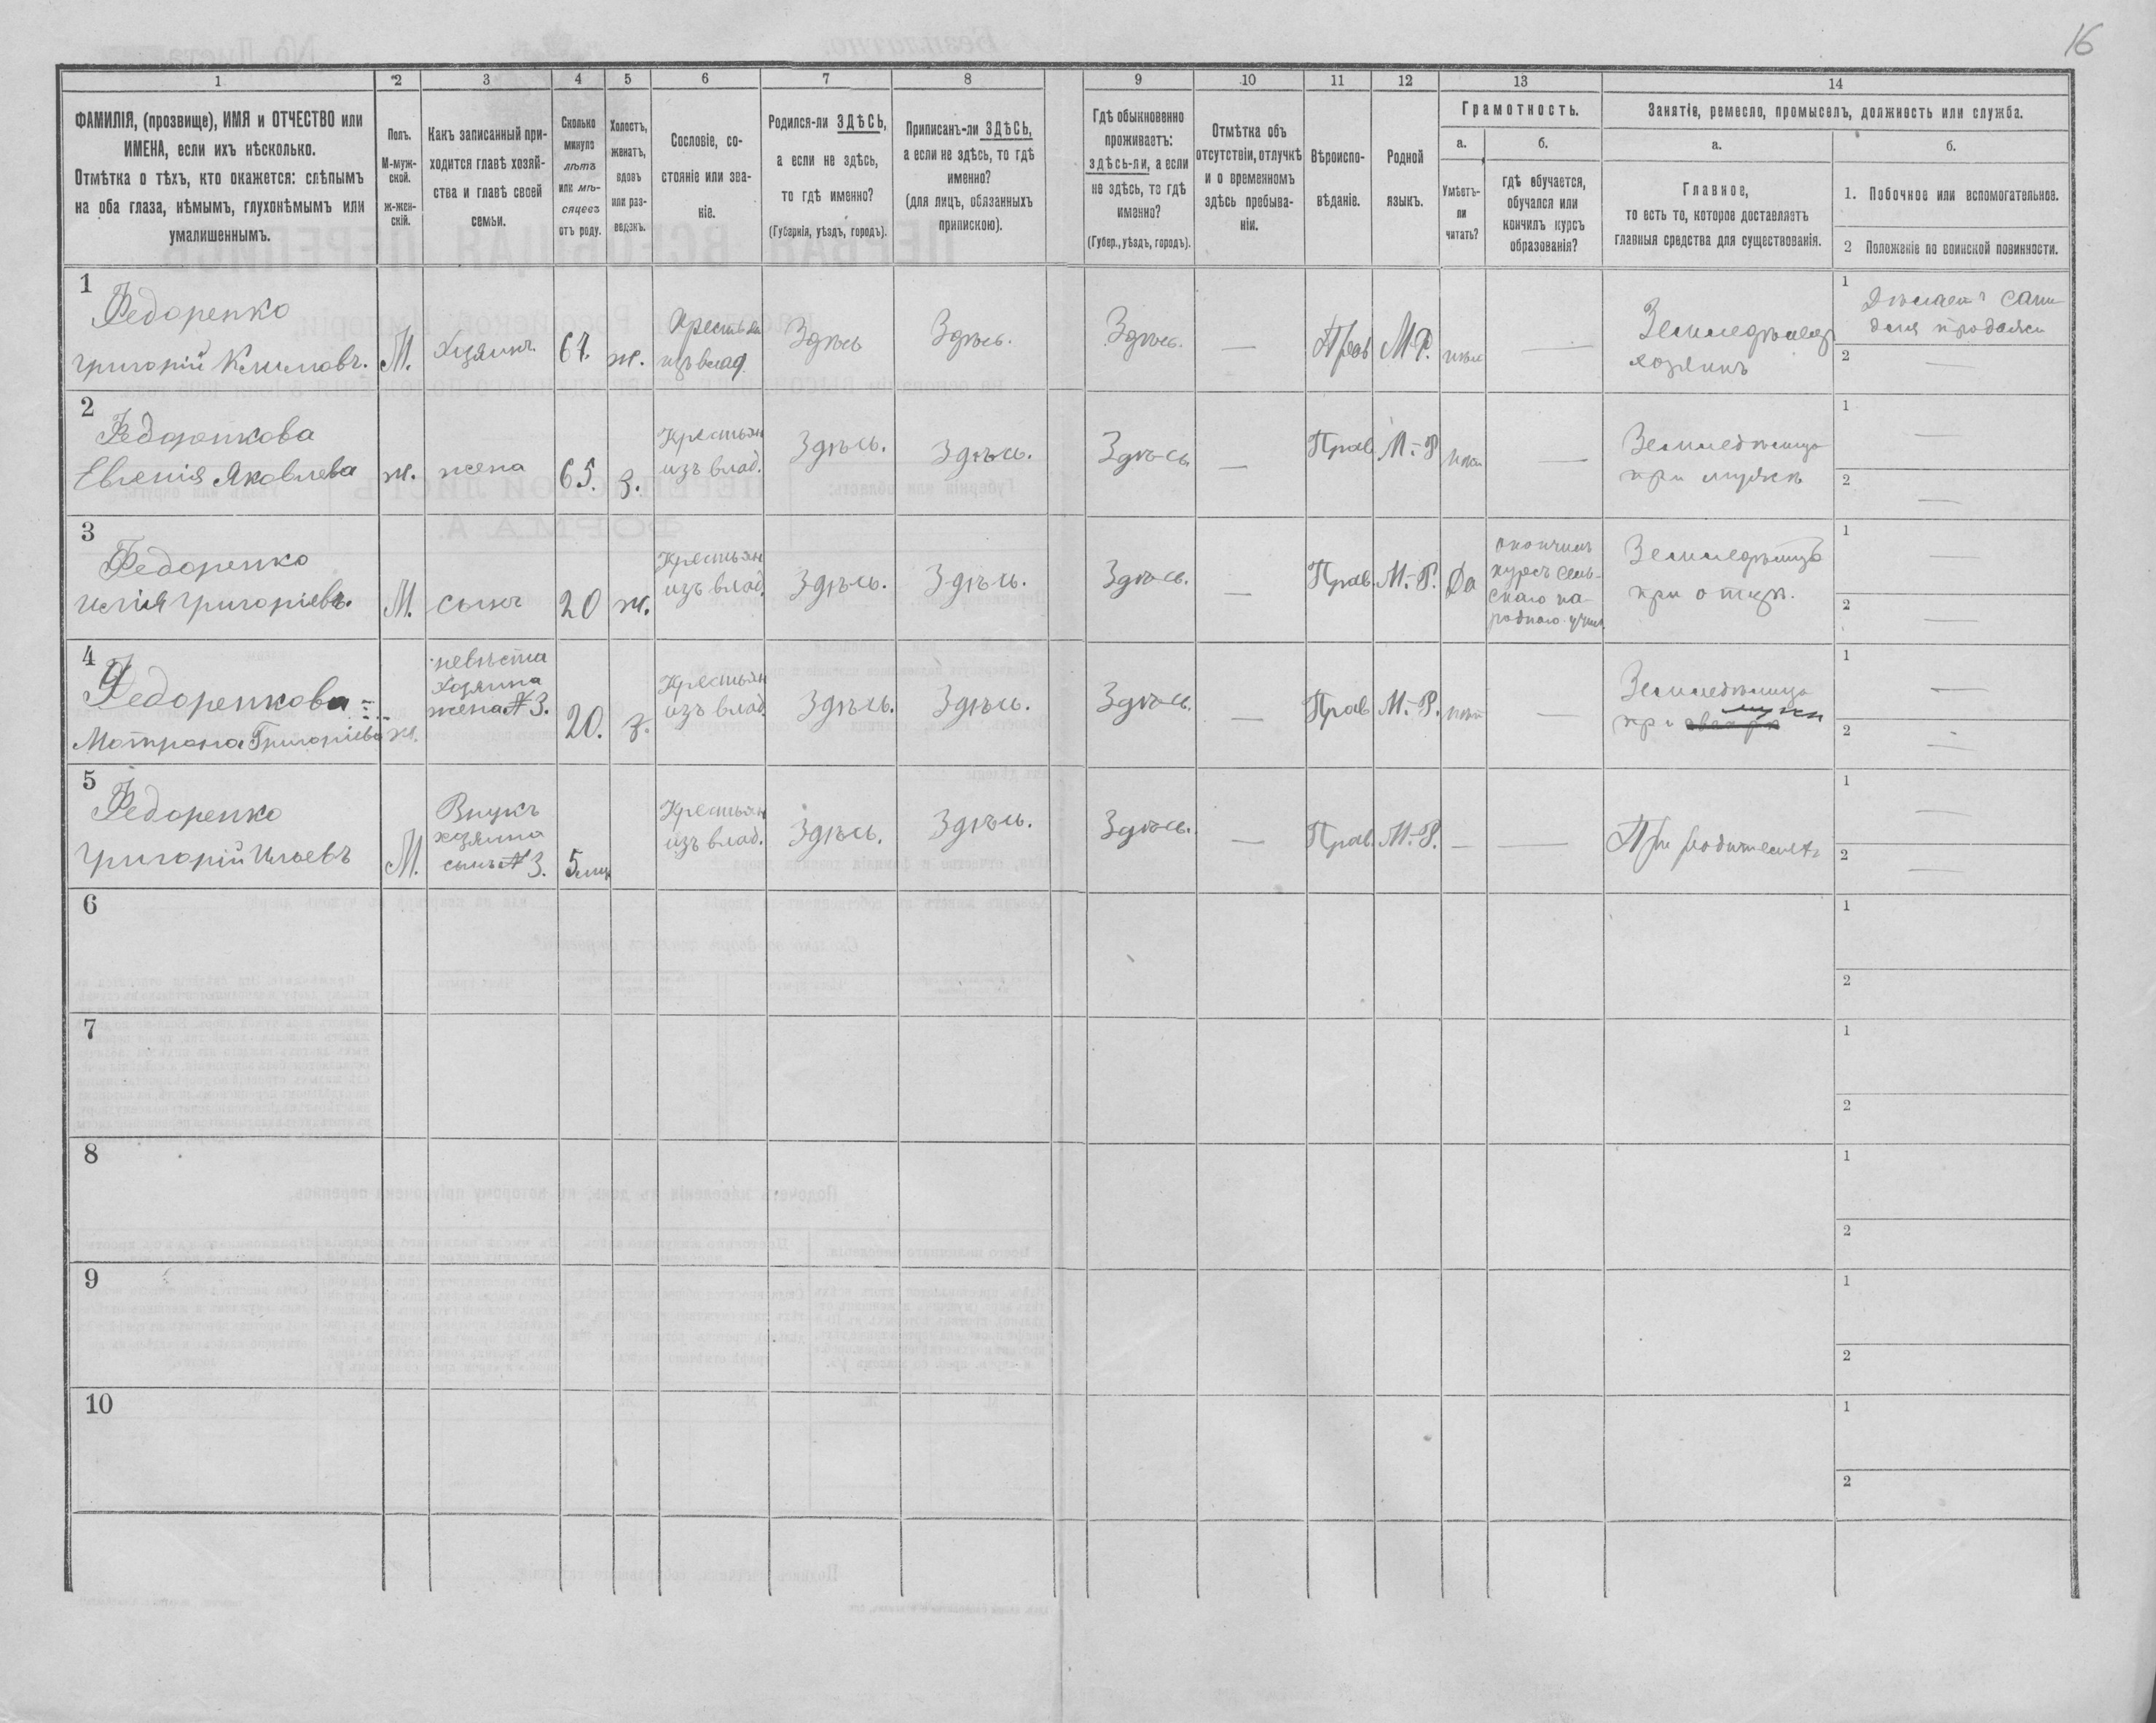 16
1 2 3 4 5 6 7 8 9 10 11 12 13 14
ФАМИЛІЯ, (прозвище), ИМЯ и ОТЧЕСТВО или
ИМЕНА, если ихъ нѣсколько.
Отмѣтка о тѣхъ, кто окажется: слѣпымъ
на оба глаза, нѣмымъ, глухонѣмымъ или
умалишеннымъ.
Полъ.
М-муж-
ской.
ж-жен-
скій.
Какъ записанный при-
ходится главѣ хозяй-
ства и главѣ своей
семьи.
Сколько
минуло
лѣтъ
или мѣ-
сяцевъ
отъ роду.
Холостъ,
женатъ,
вдовъ
или раз-
веденъ.
Сословіе, со-
стояніе или зва-
ніе.
Родился-ли ЗДѢСЬ,
а если не здѣсь,
то гдѣ именно?
(Губернія, уѣздъ, городъ).
Приписанъ-ли ЗДѢСЬ,
а если не здѣсь, то гдѣ
именно?
(для лицъ, обязанныхъ
припискою).
Гдѣ обыкновенно
проживаетъ:
здѣсь-ли, а если
не здѣсь, то гдѣ
именно?
(Губер., уѣздъ, городъ).
Отмѣтка объ
отсутствіи, отлучкѣ
и о временномъ
здѣсь пребыва-
ніи.
Вѣроиспо-
вѣданіе.
Родной
языкъ.
Грамотность.
а.
Умѣетъ-
ли
читать?
б.
гдѣ обучается,
обучался или
кончилъ курсъ
образованія?
Занятіе, ремесло, промыселъ, должность или служба.
а.
Главное,
то есть то, которое доставляетъ
главныя средства для существованія.
б.
1. Побочное или вспомогательное.
2 Положеніе по воинской повинности.
1
Федоренко
Григорій Климовъ.
М.
Хозяинъ
67.
ж.
Крестьян
изъ влад.
Здѣсь
Здѣсь.
Здѣсь.
—
Прав
М-Р.
—
Земледѣлецъ
хозяинъ
1
Дѣлаетъ сани
для продажи
2 —
2
Федоренкова
Евгенія Яковлева
ж.
жена
65.
з.
Крестьян
изъ влад.
Здѣсь.
Здѣсь.
Здѣсь
—
Прав
М-Р
нѣт
—
Земледѣлица
при мужѣ
1 —
2 —
3
Федоренко
Илія Григоріевъ.
М.
сынъ
20
ж.
Крестьян
изъ влад.
Здѣсь.
Здѣсь.
Здѣсь.
—
Прав.
М.-Р.
Да
окончилъ
курсъ сель-
скаго на-
роднаго учил.
Земледѣлецъ
при отцѣ.
1 —
2 —
4
Федоренкова
Матрона Григоріева
ж.
невѣста
хозяина
жена № 3.
20.
з.
Крестьян
изъ влад.
Здѣсь.
Здѣсь.
Здѣсь.
—
Прав
М.-Р.
нѣт
—
Земледѣлица
при мужѣ
1 —
2 —
5
Федоренко
Григорій Ильевъ
М.
Внукъ
хозяина
сынъ № 3.
5 мѣс
Крестьян
изъ влад.
Здѣсь.
Здѣсь.
Здѣсь.
—
Прав.
М.-Р.
—
—
При родителяхъ
1 —
2 —
6
1
2
7
1
2
8
1
2
9
1
2
10
1
2